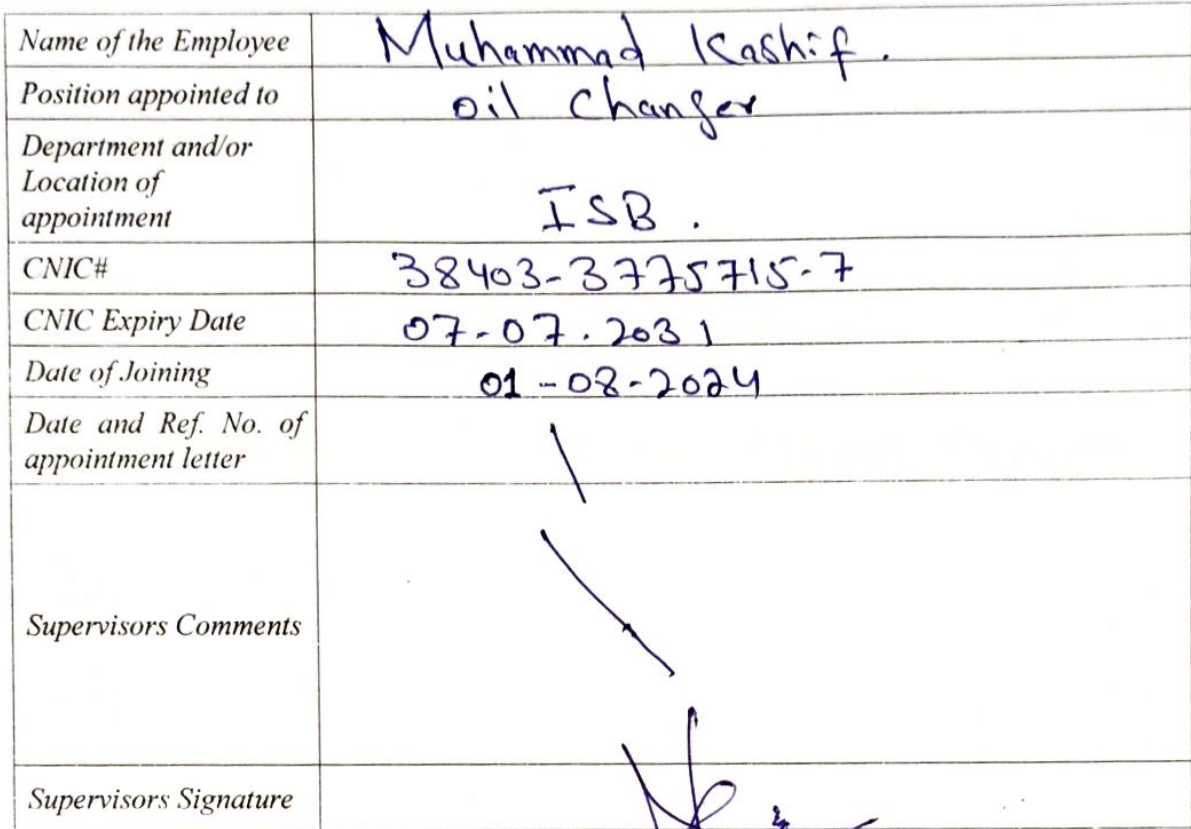 Name of the Employee Muhammad Kashif.
Position appointed to oil Changer
Department and/or
Location of
appointment ISB.
CNIC# 38403-3775715-7
CNIC Expiry Date 07-07.2031
Date of Joining 01-08-2024
Date and Ref. No. of
appointment letter
Supervisors Comments
Supervisors Signature